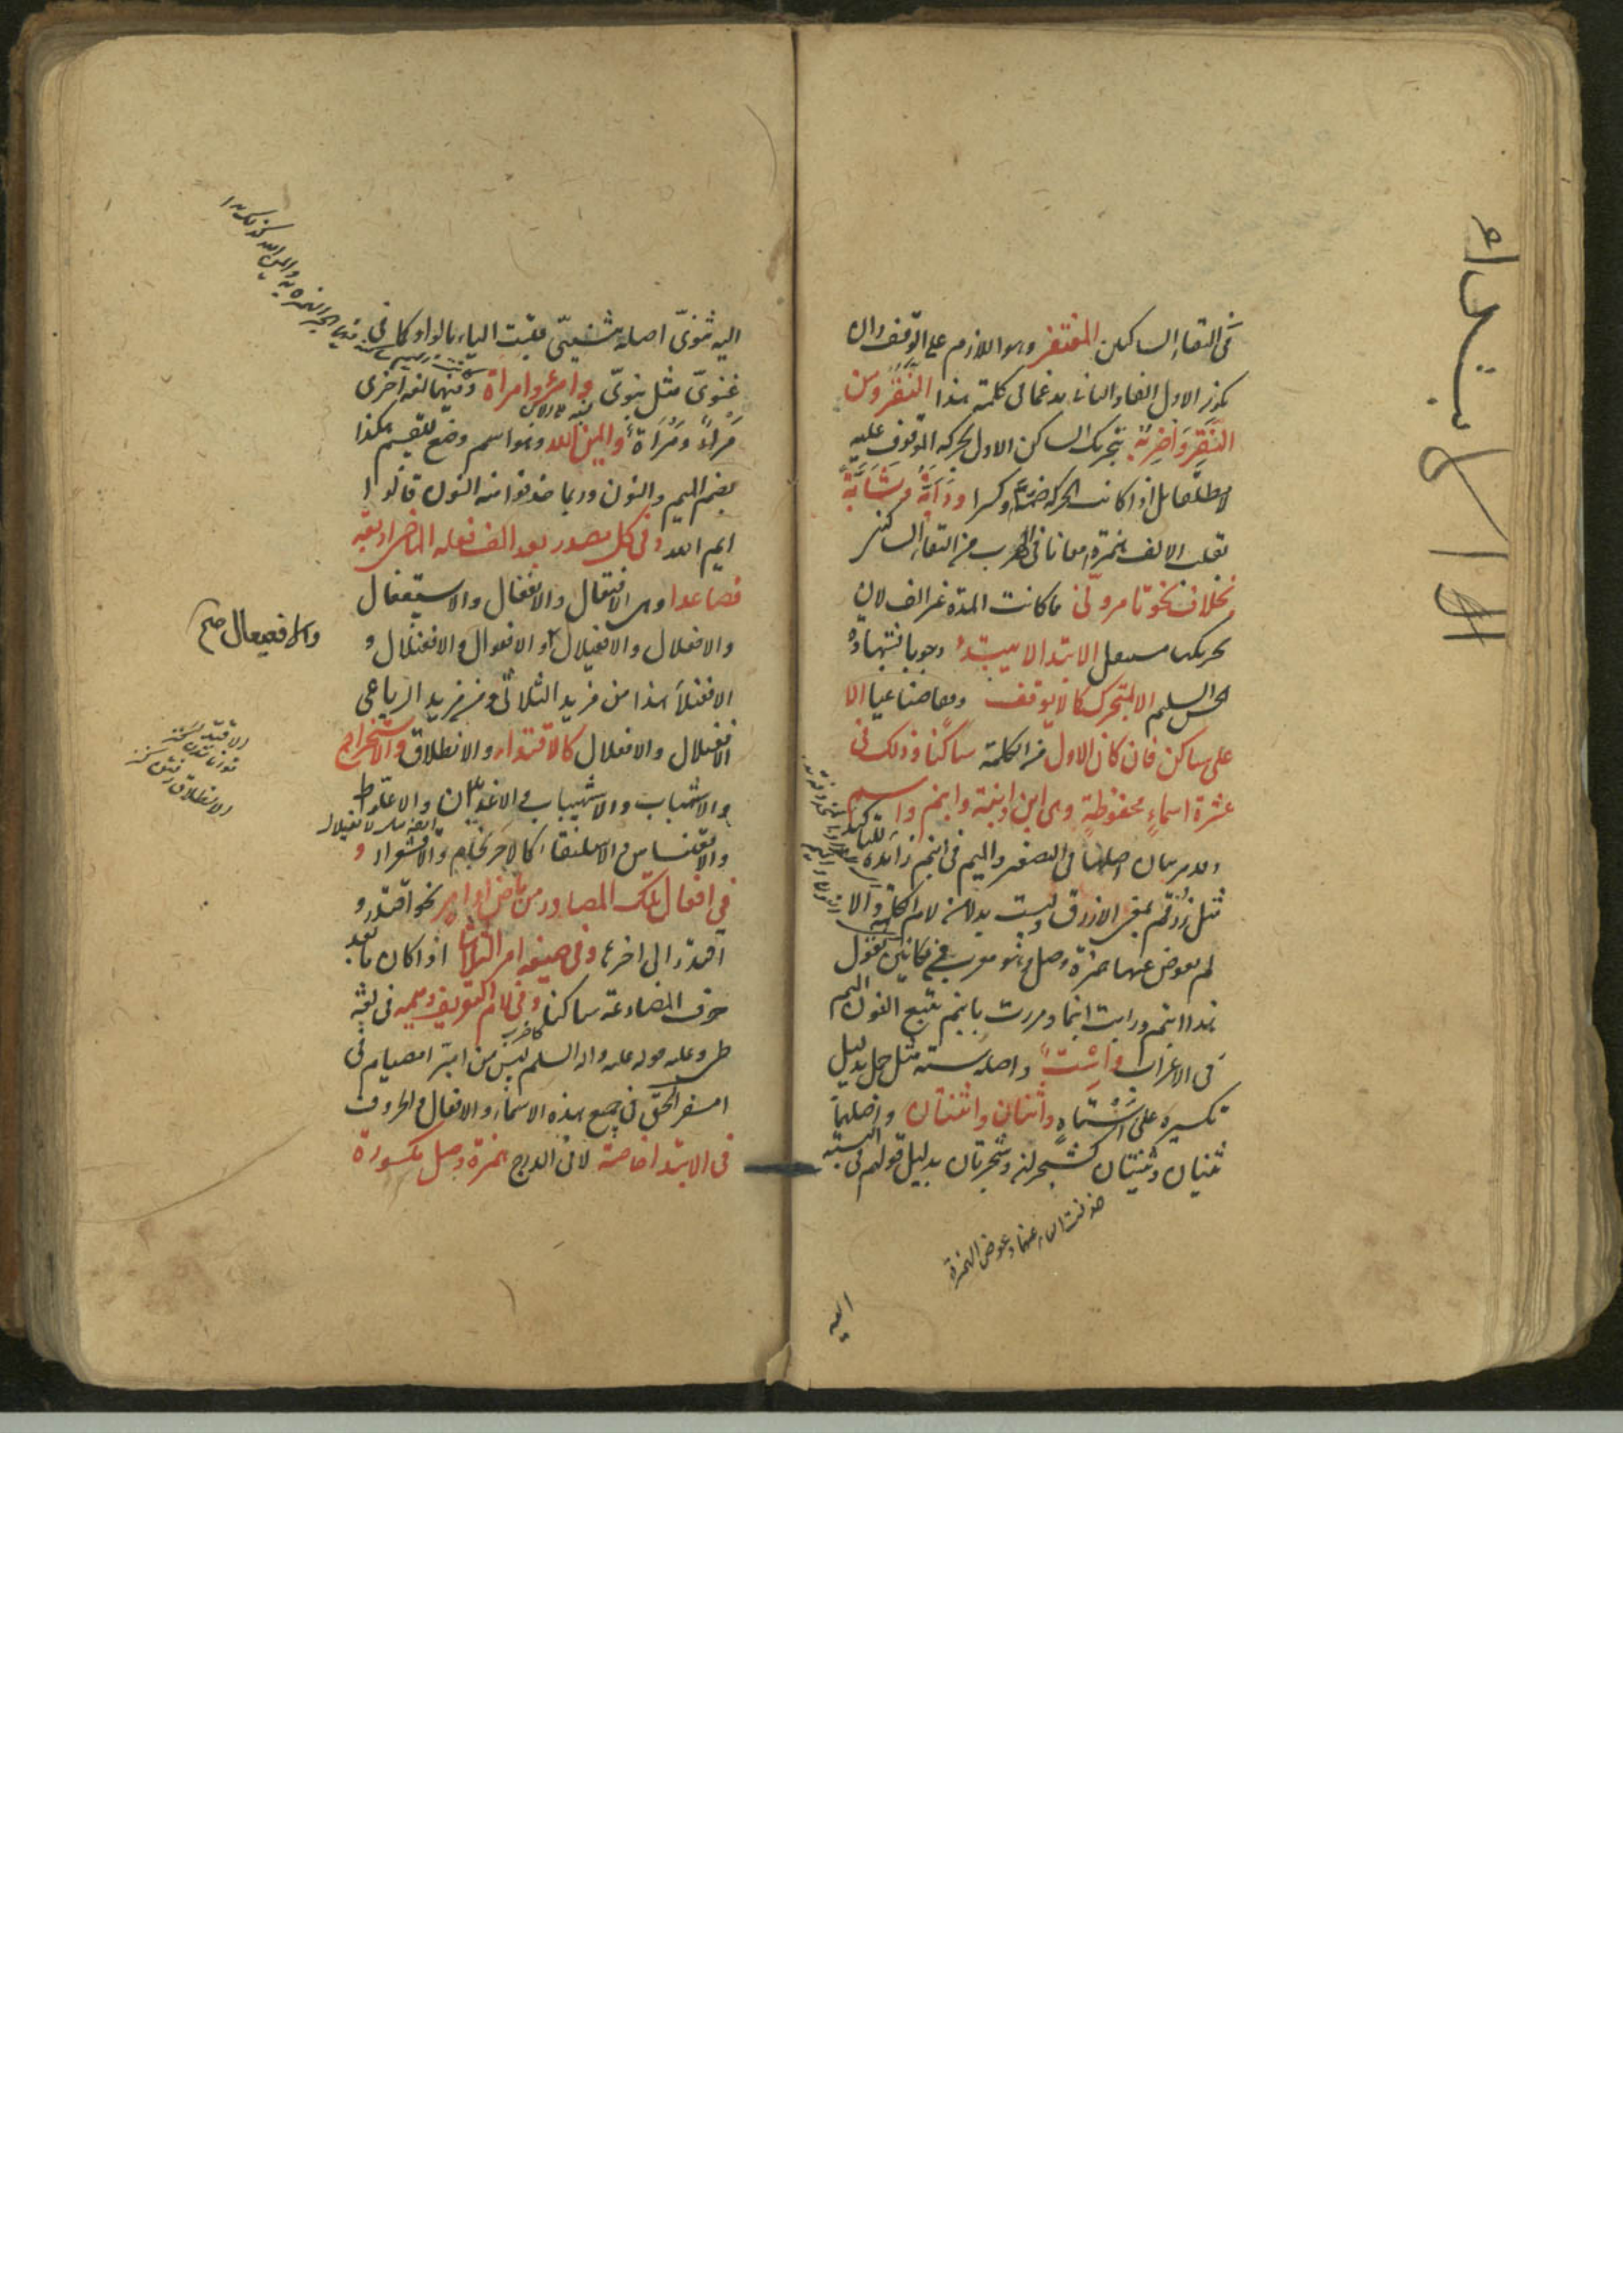 في التقاء الساكنين المغتفر وهو اللازم على الوقف وان
يكون الاول الفا والثاني مدغما في كلمة هذا النقر ومن
النقر واضربه بتحريك الساكن الاول بحركة الموقوف عليه
لا مطلقا بل اذا كانت الحركة ضما وكسرا ودأبة وشأبة
بقلب الالف همزة امعانا في الهرب من التقاء الساكنين
بخلاف نحو تامروني مما كانت المدة غير الف لان
تحريكها مستعمل الابتدا لا يبتدأ وجوبا بشهادة
الحس السليم الا بمتحرك كما لا يوقف وقفا صناعيا الا
على ساكن فان كان الاول من الكلمة ساكنا وذلك في
عشرة اسماء محفوظة وهي ابن وابنة وابنم واسم
اصلها في الصغر والميم في ابنم زائدة للتاكيد
مثل زرقم بمعنى الازرق وليست بدلا من لام الكلمة والا
لم يعوض عنها همزة وصل وهو معرب في مكانين تقول
هذا ابنم ورايت ابنما ومررت بابنم تتبع النون الميم
في الاعراب واست واصله سته مثل جمل بدليل
تكسيره على استاه واثنان واثنتان واصلهما
ثنيان وثنيتان كشجران وشجرتان بدليل قولهم في النسبة
حذفت الياء عنها وعوض الهمزة
اليه
الابتداء
اليه ثنوي اصله ثنيي قلبت الياء بالواو كما في
غنوي مثل بنوي وامرؤ وامراة وفيهما لغة اخرى
مرء ومرأة وايمن الله وهو اسم وضع للقسم هكذا
بضم الميم والنون وربما حذفوا منه النون قالوا
ايم الله وفي كل مصدر بعد الف فعله الماضي اربعة
فصاعدا وهي الافتعال والانفعال والاستفعال
والافعلال والافعيلال والافعوال والافعنلال و
الافعنلاء هذا من مزيد الثلاثي ومن مزيد الرباعي
الافعنلال والافعلال كالاقتدار والانطلاق والاستخراج
والاشهباب والاشهيباب والاغديدان والاعلواط
والاقعنساس والاسلنقاء كالاحرنجام والاقشعرار و
في افعال تلك المصادر من ماض او امر نحو اقتدر و
اقتدر الى اخره وفي صيغة امر الثلاثي اذا كان ما بعد
حرف المضارعة ساكنا وفي لام التعريف وميمه في لغة
طي وعليه قوله عليه واله السلم ليس من امبر امصيام في
امسفر الحق في جميع هذه الاسماء والافعال والحروف
في الابتدا خاصة لا في الدرج همزة وصل مكسورة
والافعيعال صح